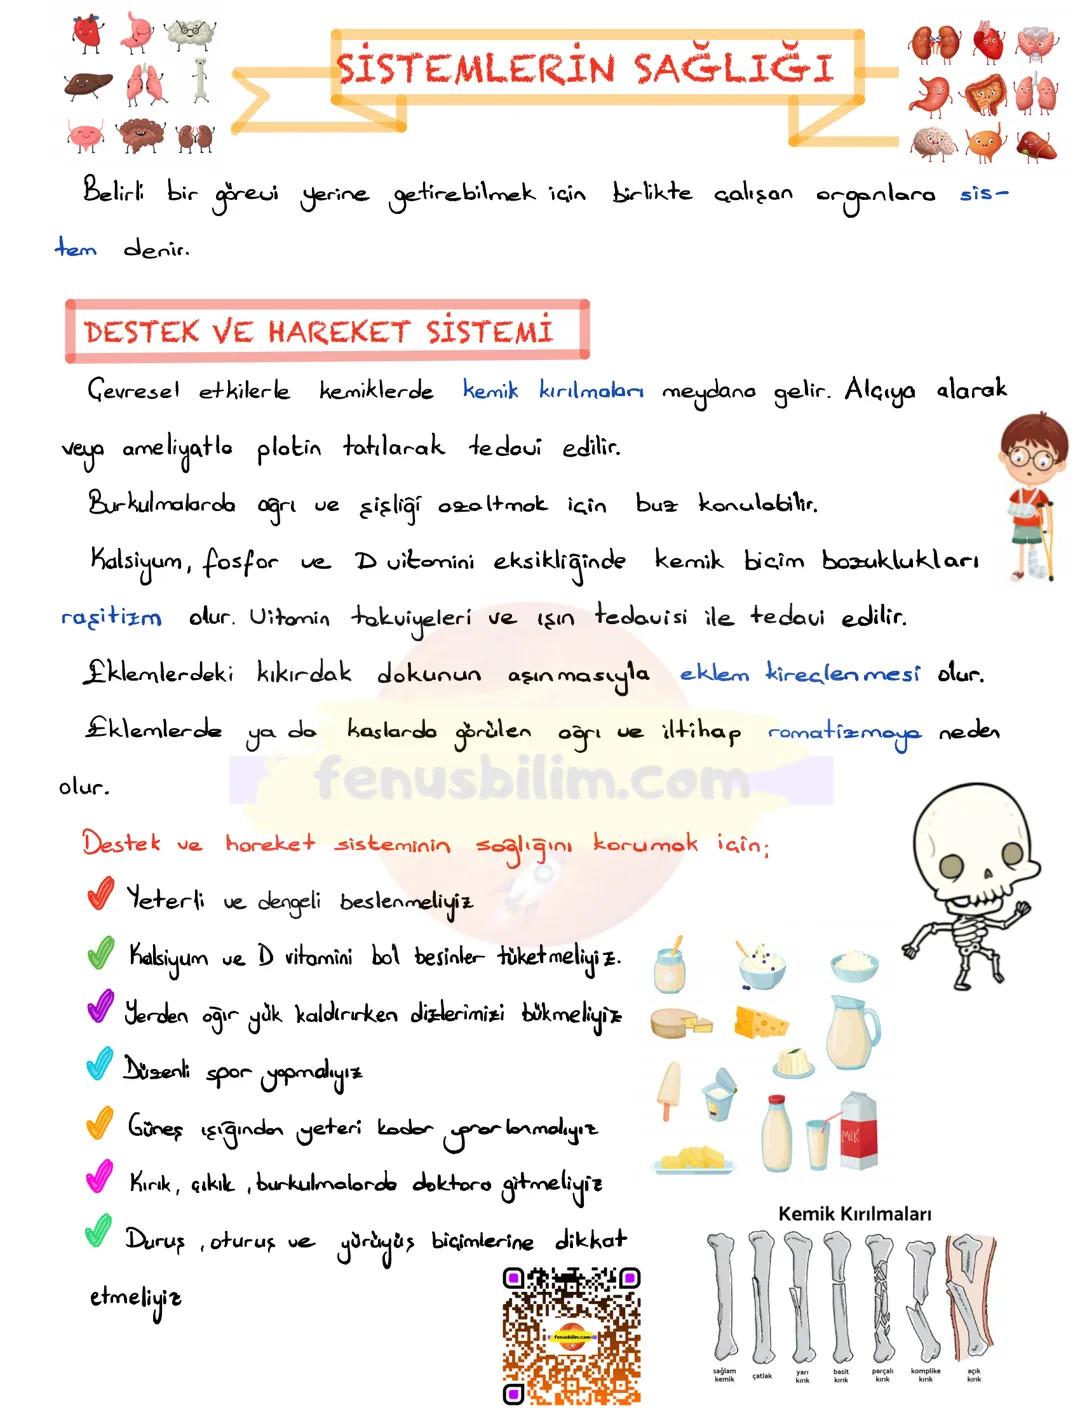 SİSTEMLERİN SAĞLIĞI
Belirli bir görevi yerine getirebilmek için birlikte çalışan organlara sis-
tem denir.
DESTEK VE HAREKET SİSTEMİ
Çevresel etkilerle kemiklerde kemik kırılmaları meydana gelir. Alçıya alarak
veya ameliyatla platin tatılarak tedavi edilir.
Burkulmalarda ağrı ve şişliği azaltmak için buz konulabilir.
Kalsiyum, fosfor ve D vitamini eksikliğinde kemik biçim bozuklukları
raşitizm olur. Vitamin takviyeleri ve ışın tedavisi ile tedavi edilir.
Eklemlerdeki kıkırdak dokunun aşınmasıyla eklem kireçlenmesi olur.
Eklemlerde ya da kaslarda görülen ağrı ve iltihap romatizmaya neden
olur.
fenusbilim.com
Destek ve hareket sisteminin sağlığını korumak için;
Yeterli ve dengeli beslenmeliyiz
Kalsiyum ve D vitamini bol besinler tüketmeliyiz.
Yerden ağır yük kaldırırken dizlerimizi bükmeliyiz
Düzenli spor yapmalıyız
Güneş ışığından yeteri kadar yararlanmalıyız
MILK
Kırık, çıkık, burkulmalarda doktora gitmeliyiz
Duruş, oturuş ve yürüyüş biçimlerine dikkat
etmeliyiz
fenusbilim.com
Kemik Kırılmaları
sağlam kemik
çatlak
yarı kırık
basit kırık
parçalı kırık
komplike kırık
açık kırık